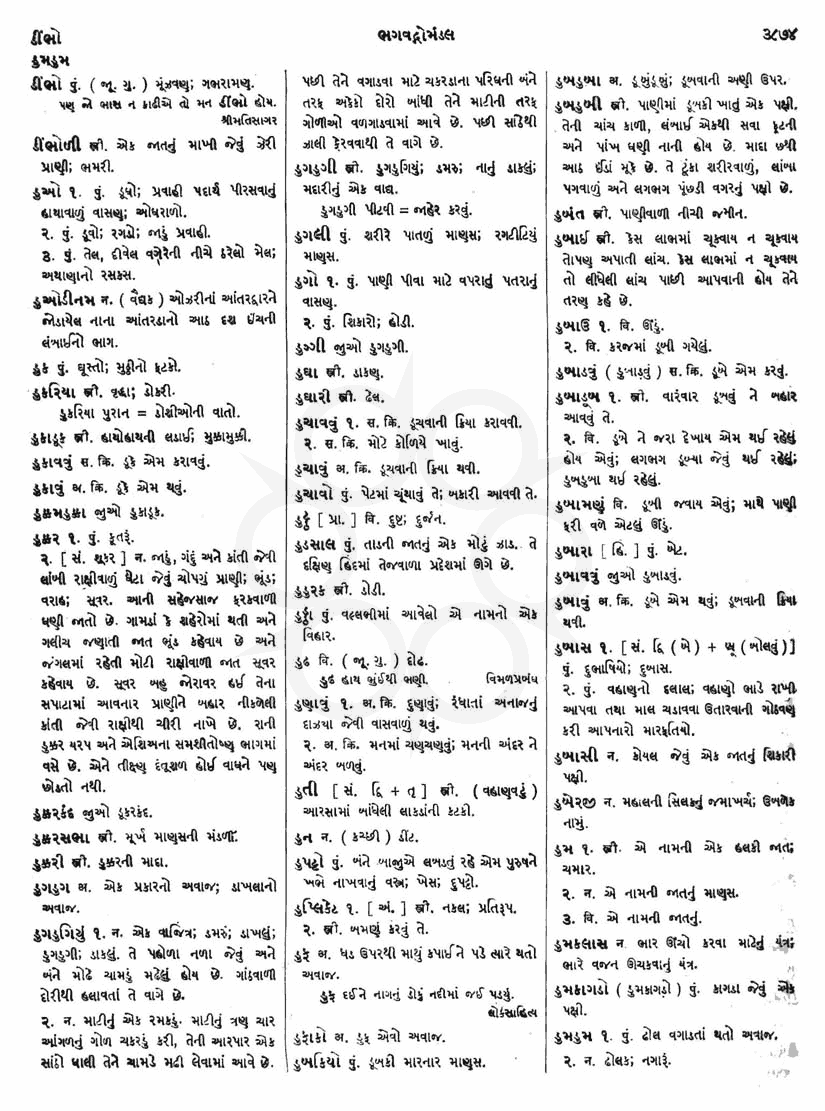 ડીંભો
ડુમડુમ
ભગવદ્ગોમંડલ
૩૮૭૪
ડીંભો પું. ( જૂ. ગુ. ) મૂંઝવણ; ગભરામણ.
પણ એ ભાસ ન કાઢીએ તો મન ડીંભો હોય.
શ્રીમતિસાગર
ડીંભોળી સ્ત્રી. એક જાતનું માખી જેવું ઝેરી
પ્રાણી; ભમરી.
ડુઓ ૧. પું. ડૂવો; પ્રવાહી પદાર્થ પીરસવાનું
હાથાવાળું વાસણ; ઓઘરાળો.
૨. પું. ડૂવો; રગડો; જાડું પ્રવાહી.
૩. પું. તેલ, દીવેલ વગેરેની નીચે ઠરેલો મેલ;
અથાણાનો રસકસ.
ડુઓડીનમ ન. ( વૈદ્યક ) ઓઝરીનાં આંતરદ્વારને
જોડાયેલ નાના આંતરડાનો આઠ દશ ઇંચની
લંબાઈનો ભાગ.
ડુક પું. ઘૂસ્તો; મુઠ્ઠીનો ફટકો.
ડુકરિયા સ્ત્રી. વૃદ્ધા; ડોકરી.
ડુકરિયા પુરાન = ડોશીઓની વાતો.
ડુકાડૂક સ્ત્રી. હાથોહાથની લડાઈ; મુક્કામુક્કી.
ડુકાવવું સ. ક્રિ. ડૂકે એમ કરાવવું.
ડુકાવું અ. ક્રિ. ડૂકે એમ થવું.
ડુક્કમડુક્કા જુઓ ડુકાડૂક.
ડુક્કર ૧. પું. કૂતરૂં.
૨. [ સં. શૂકર ] ન. જાડું, ગંદું અને કાંતી જેવી
લાંબી રાક્ષીવાળું ઘેટા જેવું ચોપગું પ્રાણી; ભૂંડ;
વરાહ; સૂવર. આની સહેજસાજ ફરકવાળી
ઘણી જાતો છે. ગામડાં કે શહેરોમાં થતી અને
ગલીચ જણાતી જાત ભૂંડ કહેવાય છે અને
જંગલમાં રહેતી મોટી રાક્ષીવાળી જાત સૂવર
કહેવાય છે. સૂવર બહુ જોરાવર હઈ તેના
સપાટામાં આવનાર પ્રાણીને બહાર નીકળેલી
કાંતી જેવી રાક્ષીથી ચીરી નાખે છે. રાની
ડુક્કર યરપ અને એશિઅના સમશીતોષ્ણ ભાગમાં
વસે છે. એને તીક્ષ્ણ દંતૂશળ હોઈ વાઘને પણ
છોડતો નથી.
ડુક્કરકંદ જુઓ ડૂકરકંદ.
ડુક્કરસભા સ્ત્રી. મૂર્ખ માણસની મંડળી.
ડુક્કરી સ્ત્રી. ડુક્કરની માદા.
ડુગડુગ અ. એક પ્રકારનો અવાજ; ડાખલાનો
અવાજ.
ડુગડુગિયું ૧. ન. એક વાજિંત્ર; ડમરું; ડાખલું;
ડુગડુગી; ડાકલું. તે પહોળા નળા જેવું અને
બંને મોઢે ચામડું મઢેલું હોય છે. ગાંઠવાળી
દોરીથી હલાવતાં તે વાગે છે.
૨. ન. માટીનું એક રમકડું. માટીનું ત્રણ ચાર
આંગળનું ગોળ ચકરડું કરી, તેની આરપાર એક
સાંઠો ઘાલી તેને ચામડે મઢી લેવામાં આવે છે.
પછી તેને વગાડવા માટે ચકરડાના પરિઘની બંને
તરફ અકેકો દોરો બાંધી તેને માટીની તરફ
ગોળીઓ વળગાડવામાં આવે છે. પછી સાંઠેથી
ઝાલી ફેરવવાથી તે વાગે છે.
ડુગડુગી સ્ત્રી. ડુગડુગિયું; ડમરુ; નાનું ડાકલું;
મદારીનું એક વાદ્ય.
ડુગડુગી પીટવી = જાહેર કરવું.
ડુગલી પું. શરીરે પાતળું માણસ; રગટીટિયું
માણસ.
ડુગો ૧. પું. પાણી પીવા માટે વપરાતું પતરાનું
વાસણ.
૨. પું. શિકારો; હોડી.
ડુગ્ગી જુઓ ડુગડુગી.
ડુઘા સ્ત્રી. ડાકણ.
ડુઘારી સ્ત્રી. ઢેલ.
ડુચાવવું ૧. સ. ક્રિ. ડૂચવાની ક્રિયા કરાવવી.
૨. સ. ક્રિ. મોટે કોળિયે ખાવું.
ડુચાવું અ. ક્રિ. ડૂચવાની ક્રિયા થવી.
ડુચાવો પું. પેટમાં ચૂંથાવું તે; બકારી આવવી તે.
ડુટ્ઠે [ પ્રા. ] વિ. દુષ્ટ; દુર્જન.
ડુડસાલ પું. તાડની જાતનું એક મોટું ઝાડ. તે
દક્ષિણ હિંદમાં તેજવાળા પ્રદેશમાં ઊગે છે.
ડુડુરક સ્ત્રી. ડોડી.
ડુડ્ડા પું. વલ્લભીમાં આવેલો એ નામનો એક
વિહાર.
ડુઢ વિ. ( જૂ. ગુ. ) દોઢ.
ડુઢ હાથ ભુંઈથી ભણી.
વિમળપ્રબંધ
ડુણાવું ૧. અ. ક્રિ. દુણાવું; રંધાતાં અનાજનું
દાઝ્યા જેવી વાસવાળું થવું.
૨. અ. ક્રિ. મનમાં ચણચણવું; મનની અંદર ને
અંદર બળવું.
ડુતી [ સં. દ્વિ + તૃ ] સ્ત્રી. ( વહાણવટું )
આરસામાં બાંધેલી લાકડાંની કટકી.
ડુન ન. ( કચ્છી ) ડીંટ.
ડુપટ્ટો પું. બંને બાજુએ લબડતું રહે એમ પુરુષને
ખભે નાખવાનું વસ્ત્ર; ખેસ; દુપટ્ટો.
ડુપ્લિકેટ ૧. [ અં. ] સ્ત્રી. નકલ; પ્રતિરૂપ.
૨. સ્ત્રી. બમણું કરવું તે.
ડુફ અ. ધડ ઉપરથી માથું કપાઈને પડે ત્યારે થતો
અવાજ.
ડુફ દઈને નાગનું ડોકું નદીમાં જઈ પડયું.
લોકસાહિત્ય
ડુફાકો અ. ડુફ એવો અવાજ.
ડુબકિયો પું. ડૂબકી મારનાર માણસ.
ડુબડુબા અ. ડૂબુંડૂબું; ડૂબવાની અણી ઉપર.
ડુબડુબી સ્ત્રી. પાણીમાં ડૂબકી ખાતું એક પક્ષી.
તેની ચાંચ કાળી, લંબાઈ એકથી સવા ફૂટની
અને પાંખ ઘણી નાની હોય છે. માદા છથી
આઠ ઈંડાં મૂકે છે. તે ટૂંકા શરીરવાળું, લાંબા
પગવાળું અને લગભગ પૂંછડી વગરનું પક્ષી છે.
ડુબંત સ્ત્રી. પાણીવાળી નીચી જમીન.
ડુબાઈ સ્ત્રી. કેસ લાભમાં ચૂકવાય ન ચૂકવાય
તોપણ અપાતી લાંચ. કેસ લાભમાં ન ચૂકવાય
તો લીધેલી લાંચ પાછી આપવાની હોય તેને
તરણુ કહે છે.
ડુબાઉ ૧. વિ. ઊંડું.
૨. વિ. કરજમાં ડૂબી ગયેલું.
ડુબાડવું ( ડુબાડ્વું ) સ. ક્રિ. ડૂબે એમ કરવું.
ડુબાડૂબ ૧. સ્ત્રી. વારંવાર ડૂબવું ને બહાર
આવવું તે.
૨. વિ. ડૂબે ને જરા દેખાય એમ થઈ રહેલું
હોય એવું; લગભગ ડૂબ્યા જેવું થઈ રહેલું;
ડુબડુબા થઈ રહેલું.
ડુબામણું વિ. ડૂબી જવાય એવું; માથે પાણી
ફરી વળે એટલું ઊંડું.
ડુબારા [ હિં. ] પું. બેટ.
ડુબાવવું જુઓ ડુબાડવું.
ડુબાવું અ. ક્રિ. ડૂબે એમ થવું; ડૂબવાની ક્રિયા
થવી.
ડુબાસ ૧. [ સં. દ્વિ ( બે ) + બ્રૂ ( બોલવું )]
પું. દુભાષિયો; દુબાસ.
૨. પું. વહાણનો દલાલ; વહાણો ભાડે રાખી
આપવા તથા માલ ચડાવવા ઉતારવાની ગોઠવણ
કરી આપનારો મારફતિયો.
ડુબાસી ન. કોયલ જેવું એક જાતનું શિકારી
પક્ષી.
ડુબેરજી ન. મહાલની સિલકનું જમાખર્ચ; ઉબળેક
નામું.
ડુમ ૧. સ્ત્રી. એ નામની એક હલકી જાત;
ચમાર.
૨. ન. એ નામની જાતનું માણસ.
૩. વિ. એ નામની જાતનું.
ડુમકલાસ ન. ભાર ઊંચો કરવા માટેનું યંત્ર;
ભારે વજન ઊચકવાનું યંત્ર.
ડુમકાગડો ( ડુમકાગ્ડો ) પું. કાગડા જેવું એક
પક્ષી.
ડુમડુમ ૧. પું. ઢોલ વગાડતાં થતો અવાજ.
૨. ન. ઢોલક; નગારૂં.